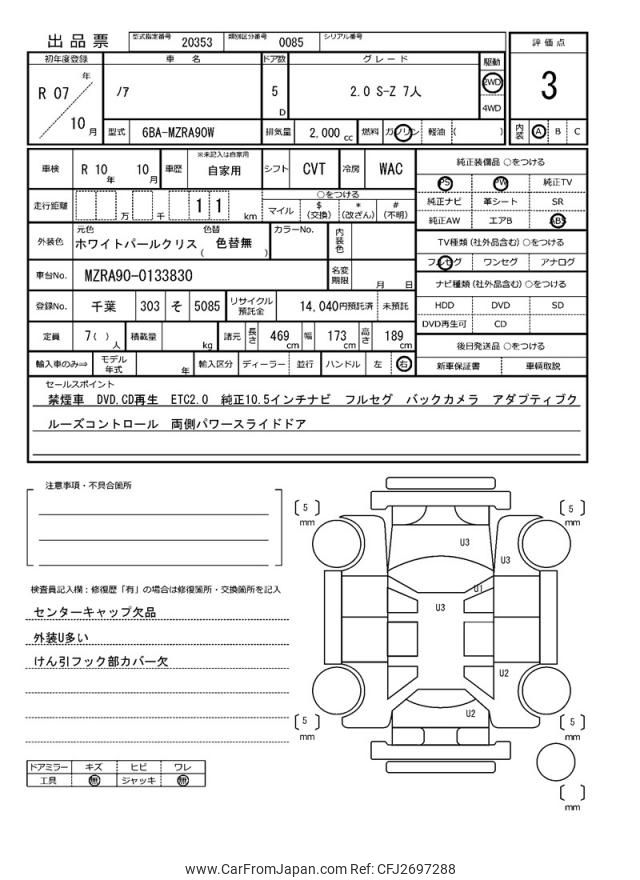 出品票 型式指定番号 20353 類別区分番号 0085 シリアル番号
評価点
3
内装 A B C
初年度登録 車名 ドア数 グレード 駆動
R 07 年 10 月 ﾉｱ 5 D 2.0 S-Z 7人 2WD
4WD
型式 6BA-MZRA90W 排気量 2,000 cc 燃料 ガソリン 軽油 ( )
車検 R 10 年 10 月 車歴 ※未記入は自家用 自家用 シフト CVT 冷房 WAC
走行距離 万 千 1 1 km
○をつける
マイル $ (交換) * (改ざん) # (不明)
外装色 元色 ホワイトパールクリス 色替 ( 色替無 ) カラーNo. 内装色
車台No. MZRA90-0133830 名変期限 月 日
登録No. 千葉 303 そ 5085 リサイクル預託金 14,040円預託済 未預託
定員 7( ) 人 積載量 kg 諸元 長さ 469 cm 幅 173 cm 高さ 189 cm
輸入車のみ⇒ モデル年式 年 輸入区分 ディーラー 並行 ハンドル 左 右
純正装備品 ○をつける
PS PW 純正TV
純正ナビ 革シート SR
純正AW エアB ABS
TV種類 (社外品含む) ○をつける
フルセグ ワンセグ アナログ
ナビ種類 (社外品含む) ○をつける
HDD DVD SD
DVD再生可 CD
後日発送品 ○をつける
新車保証書 車輌取説
セールスポイント
禁煙車 DVD.CD再生 ETC2.0 純正10.5インチナビ フルセグ バックカメラ アダプティブク
ルーズコントロール 両側パワースライドドア
注意事項・不具合箇所
検査員記入欄：修復歴「有」の場合は修復箇所・交換箇所を記入
センターキャップ欠品
外装U多い
けん引フック部カバー欠
ドアミラー キズ ヒビ ワレ
工具 無 ジャッキ 無
[ 5 ] mm
[ 5 ] mm
U3
U3
U1
U3
U2
U2
[ 5 ] mm
[ 5 ] mm
[ ] mm
www.CarFromJapan.com Ref: CFJ2697288